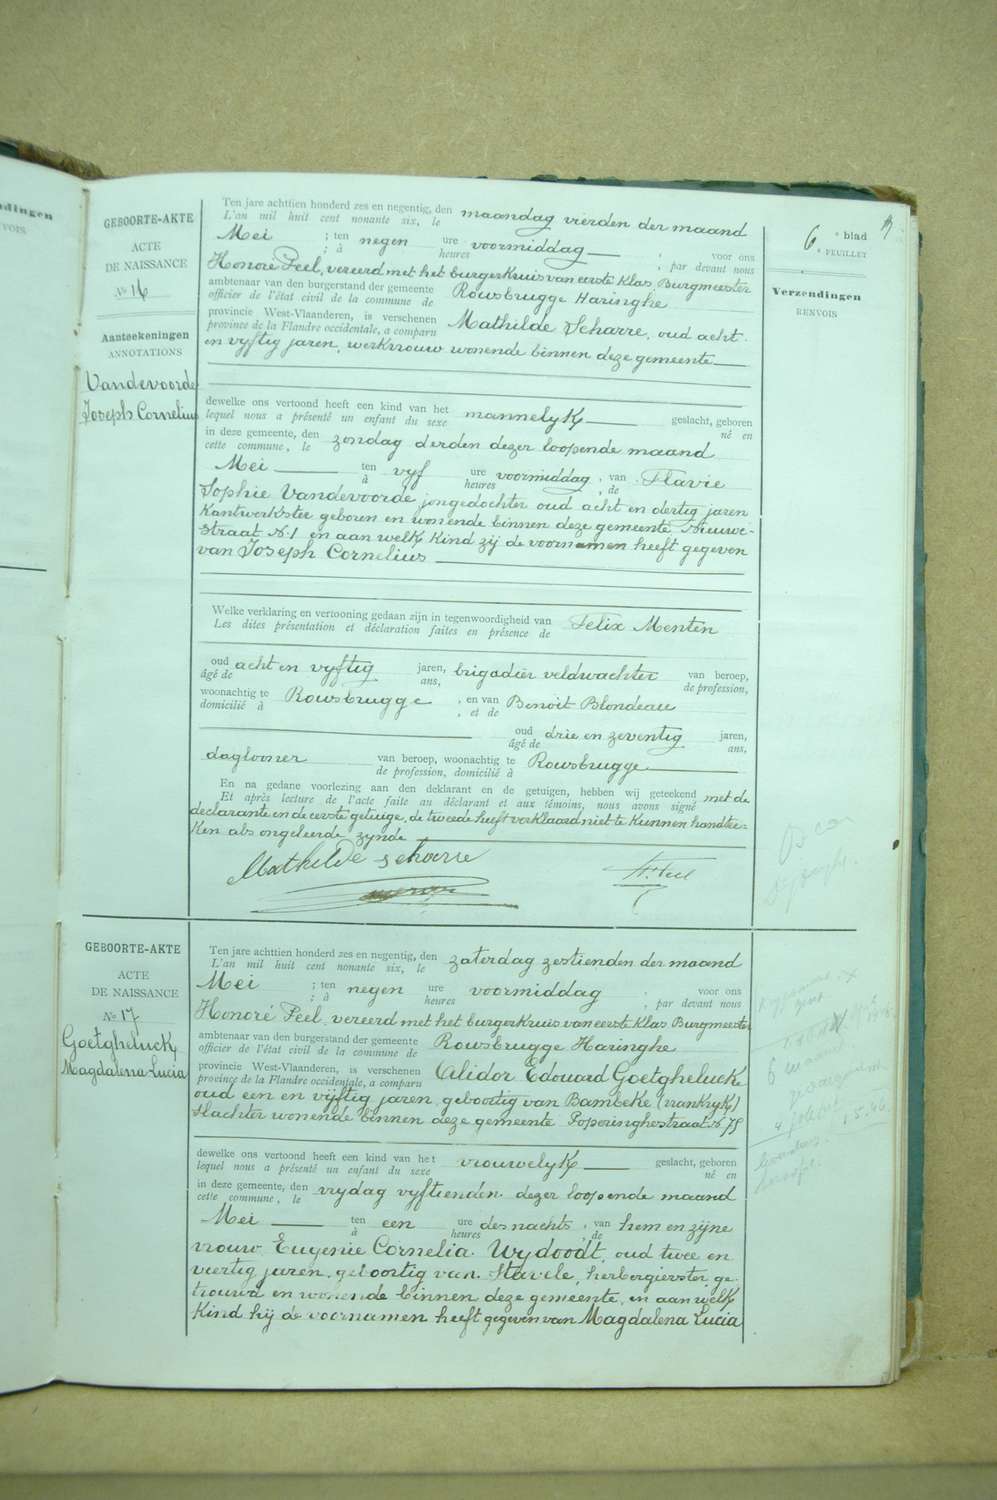 6e blad
e FEUILLET
Verzendingen
RENVOIS
GEBOORTE-AKTE
ACTE
DE NAISSANCE
No 16
Aanteekeningen
ANNOTATIONS
Vandevoorde
Joseph Cornelius
Ten jare achttien honderd zes en negentig, den maandag vierden der maand
L'an mil huit cent nonante six, le
Mei ; ten negen ure voormiddag ; voor ons
; à heures , par devant nous
Honoré Peel, vereerd met het burgerkruis van eerste Klas, Burgmeester
ambtenaar van den burgerstand der gemeente Rousbrugge Haringhe
officier de l'état civil de la commune de
provincie West-Vlaanderen, is verschenen Mathilde Scharre, oud acht
province de la Flandre occidentale, a comparu
en vyftig jaren, werkvrouw wonende binnen deze gemeente
dewelke ons vertoond heeft een kind van het mannelyk geslacht, geboren
lequel nous a présenté un enfant du sexe né en
in deze gemeente, den zondag derden dezer loopende maand
cette commune, le
Mei ten vyf ure voormiddag, van Flavie
à heures , de
Sophie Vandevoorde jongedochter oud acht en dertig jaren
Kantwerkster geboren en wonende binnen deze gemeente Nieuwe-
straat No 1 en aan welk Kind zij de voornamen heeft gegeven
van Joseph Cornelius
Welke verklaring en vertooning gedaan zijn in tegenwoordigheid van Felix Menten
Les dites présentation et déclaration faites en présence de
oud acht en vyftig jaren, brigadier veldwachter van beroep,
âgé de ans, de profession,
woonachtig te Rousbrugge , en van Benoit Blondeau
domicilié à , et de
oud drie en zeventig jaren,
âgé de ans,
daglooner van beroep, woonachtig te Rousbrugge
de profession, domicilié à
En na gedane voorlezing aan den deklarant en de getuigen, hebben wij geteekend met de
Et après lecture de l'acte faite au déclarant et aux témoins, nous avons signé
declarante en de eerste getuige, de tweede heeft verklaard niet te kunnen handtee-
ken als ongeleerde zynde
Mathilde Scharre
H. Peel
GEBOORTE-AKTE
ACTE
DE NAISSANCE
No 17
Goetgheluck
Magdalena Lucia
Ten jare achttien honderd zes en negentig, den zaterdag zestienden der maand
L'an mil huit cent nonante six, le
Mei ; ten negen ure voormiddag ; voor ons
; à heures , par devant nous
Honoré Peel, vereerd met het burgerkruis van eerste Klas, Burgmeester
ambtenaar van den burgerstand der gemeente Rousbrugge Haringhe
officier de l'état civil de la commune de
provincie West-Vlaanderen, is verschenen Alidor Edouard Goetgheluck
province de la Flandre occidentale, a comparu
oud een en vijftig jaren, geboortig van Bambeke (vrankryk)
slachter wonende binnen deze gemeente Poperinghestraat No 75
dewelke ons vertoond heeft een kind van het vrouwelyk geslacht, geboren
lequel nous a présenté un enfant du sexe né en
in deze gemeente, den vrydag vyftienden dezer loopende maand
cette commune, le
Mei ten een ure des nachts, van hem en zijne
à heures , de
vrouw Eugenie Cornelia Wydoodt, oud twee en
veertig jaren, geboortig van Stavele, herbergierster, ge-
trouwd en wonende binnen deze gemeente, en aan welk
Kind hij de voornamen heeft gegeven van Magdalena Lucia